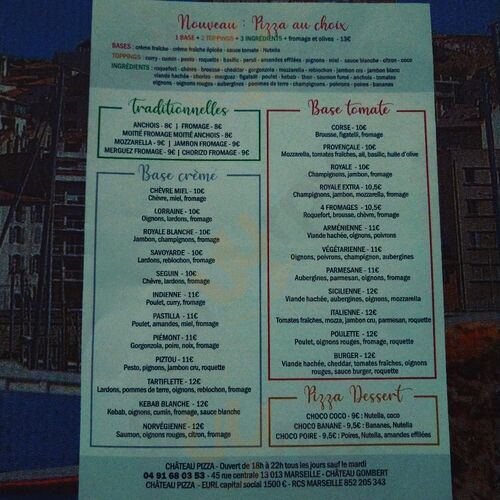 Nouveau : Pizza au choix
1 BASE + 2 TOPPINGS + 3 INGRÉDIENTS + fromage et olives - 13€
BASES : crème fraîche - crème fraîche épicée - sauce tomate - Nutella
TOPPINGS : curry - cumin - pesto - roquette - basilic - persil - amandes effilées - pignons - miel - sauce blanche - citron - coco
INGRÉDIENTS : roquefort - chèvre - brousse - cheddar - gorgonzola - mozzarella - reblochon - jambon cru - jambon blanc
viande hachée - chorizo - merguez - figatelli - poulet - kebab - thon - saumon fumé - anchois - tomates
oignons - oignons rouges - aubergines - pommes de terre - champignons - poivrons - poires - bananes
Traditionnelles
ANCHOIS - 8€ | FROMAGE - 8€
MOITIÉ FROMAGE MOITIÉ ANCHOIS - 8€
MOZZARELLA - 9€ | JAMBON FROMAGE - 9€
MERGUEZ FROMAGE - 9€ | CHORIZO FROMAGE - 9€
Base crème
CHÈVRE MIEL - 10€
Chèvre, miel, fromage
LORRAINE - 10€
Oignons, lardons, fromage
ROYALE BLANCHE - 10€
Jambon, champignons, fromage
SAVOYARDE - 10€
Lardons, reblochon, fromage
SEGUIN - 10€
Chèvre, lardons, fromage
INDIENNE - 11€
Poulet, curry, fromage
PASTILLA - 11€
Poulet, amandes, miel, fromage
PIÉMONT - 11€
Gorgonzola, poire, noix, fromage
PIZTOU - 11€
Pesto, pignons, jambon cru, roquette
TARTIFLETTE - 12€
Lardons, pommes de terre, oignons, reblochon, fromage
KEBAB BLANCHE - 12€
Kebab, oignons, cumin, fromage, sauce blanche
NORVÉGIENNE - 12€
Saumon, oignons rouges, citron, fromage
Base tomate
CORSE - 10€
Brousse, figatelli, fromage
PROVENÇALE - 10€
Mozzarella, tomates fraîches, ail, basilic, huile d'olive
ROYALE - 10€
Champignons, jambon, fromage
ROYALE EXTRA - 10,5€
Champignons, jambon, mozzarella, fromage
4 FROMAGES - 10,5€
Roquefort, brousse, chèvre, fromage
ARMÉNIENNE - 11€
Viande hachée, oignons, poivrons
VÉGÉTARIENNE - 11€
Oignons, poivrons, champignon, aubergines
PARMESANE - 11€
Aubergines, parmesan, pignons, fromage
SICILIENNE - 12€
Viande hachée, aubergines, oignons, mozzarella
ITALIENNE - 12€
Tomates fraîches, mozza, jambon cru, parmesan, roquette
POULETTE - 12€
Poulet, oignons rouges, fromage, roquette
BURGER - 12€
Viande hachée, cheddar, tomates fraîches, oignons
rouges, sauce burger, roquette
Pizza Dessert
CHOCO COCO - 9€ : Nutella, coco
CHOCO BANANE - 9,5€ : Bananes, Nutella
CHOCO POIRE - 9,5€ : Poires, Nutella, amandes effilées
CHÂTEAU PIZZA - Ouvert de 18h à 22h tous les jours sauf le mardi
04 91 68 03 53 - 45 rue centrale 13 013 MARSEILLE - CHÂTEAU GOMBERT
CHÂTEAU PIZZA - EURL capital social 1500 € - RCS MARSEILLE 852 205 343